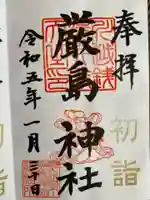 奉拝
厳島神社
令和五年一月三十日
初詣